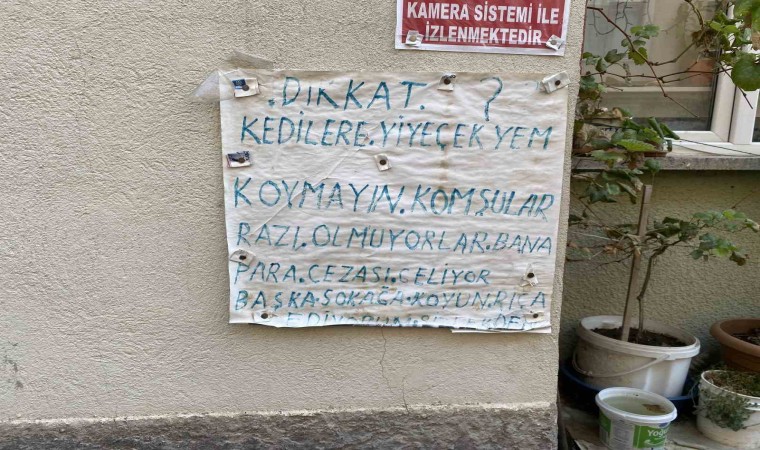 KAMERA SİSTEMİ İLE
İZLENMEKTEDİR
.DİKKAT. ?
KEDİLERE.YİYEÇEK YEM
KOYMAYIN.KOMŞULAR
RAZI.OLMUYORLAR.BANA
PARA.CEZASI.GELİYOR
BAŞKA.SOKAĞA.KOYUN.RİCA
EDİYORUM.